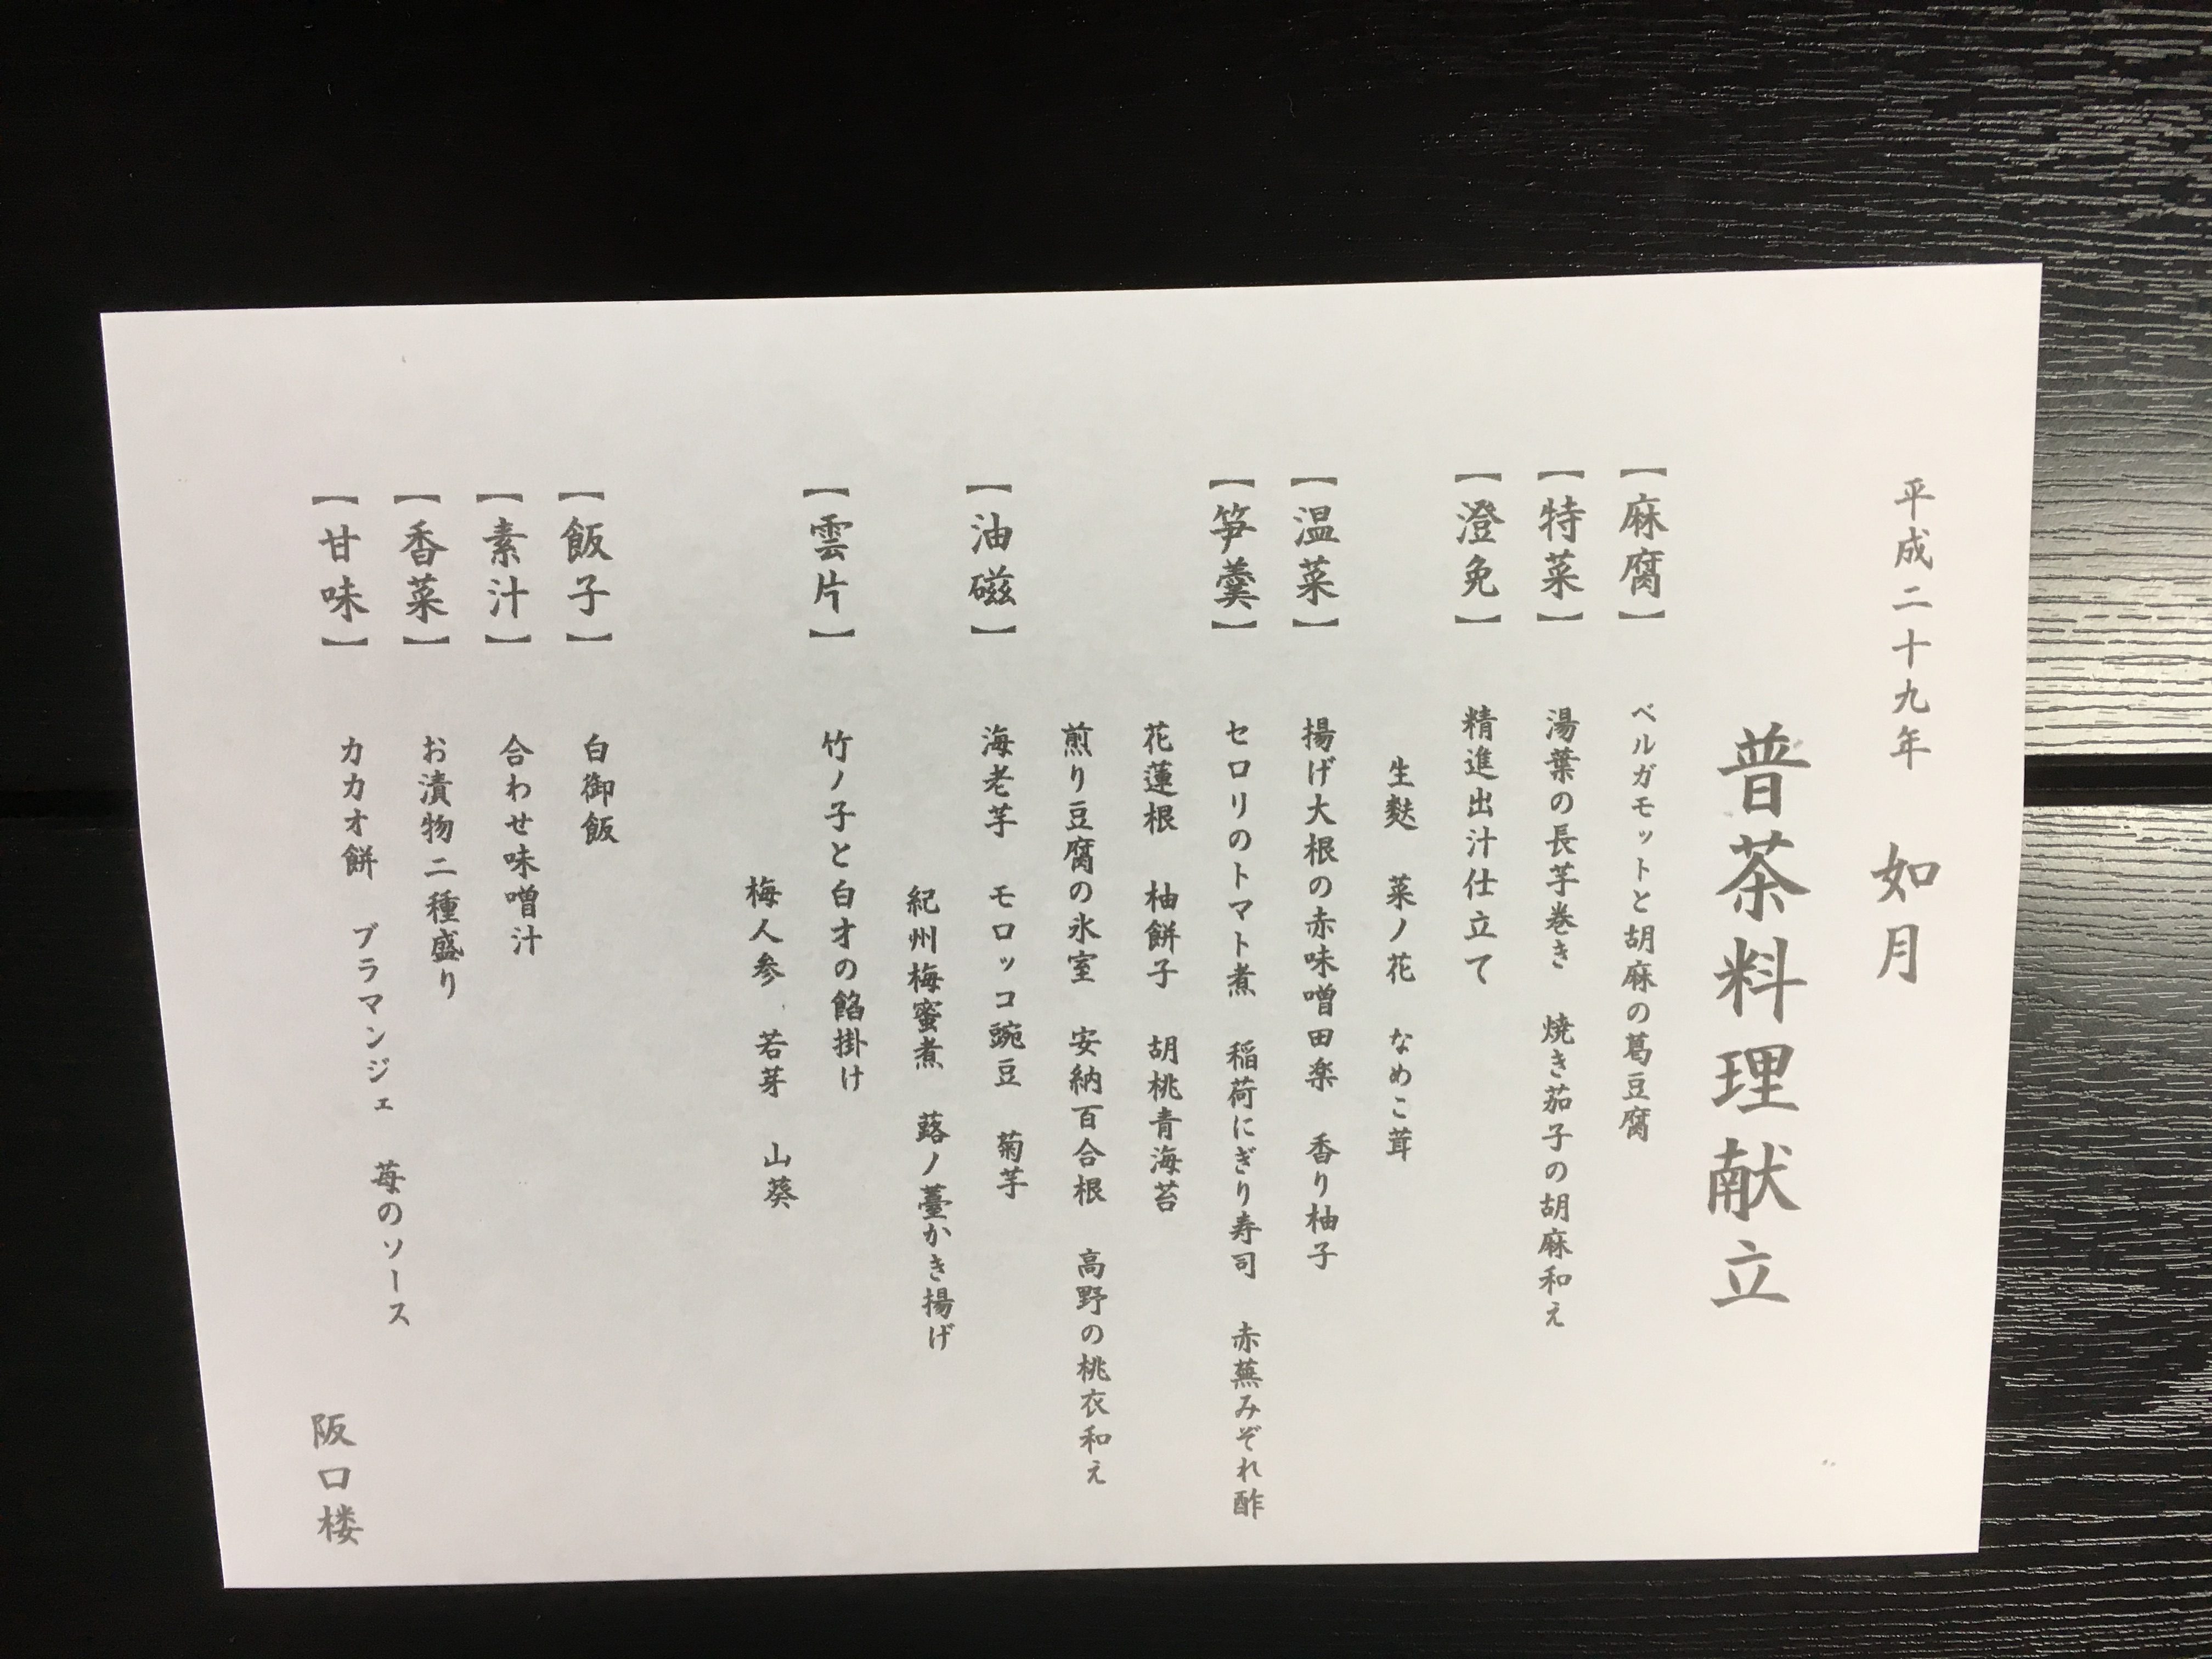 平成二十九年　如月
普茶料理献立
【麻腐】　ベルガモットと胡麻の葛豆腐
【特菜】　湯葉の長芋巻き　焼き茄子の胡麻和え
【澄免】　精進出汁仕立て
生麩　菜ノ花　なめこ茸
【温菜】　揚げ大根の赤味噌田楽　香り柚子
【笋羹】　セロリのトマト煮　稲荷にぎり寿司　赤蕪みぞれ酢
花蓮根　柚餅子　胡桃青海苔
煎り豆腐の氷室　安納百合根　高野の桃衣和え
【油磁】　海老芋　モロッコ豌豆　菊芋
紀州梅蜜煮　蕗ノ薹かき揚げ
【雲片】　竹ノ子と白才の餡掛け
梅人参　若芽　山葵
【飯子】　白御飯
【素汁】　合わせ味噌汁
【香菜】　お漬物二種盛り
【甘味】　カカオ餅　ブラマンジェ　苺のソース
阪口楼